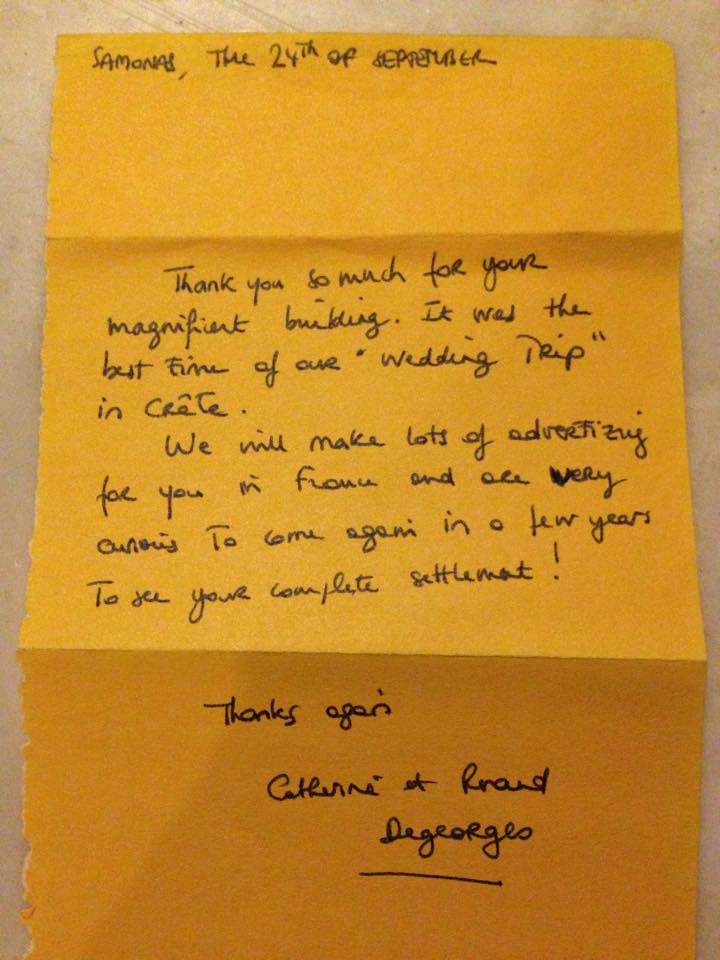 SAMONAS, THE 24TH OF SEPTEMBER
Thank you so much for your
magnifient building. It was the
best time of our "Wedding Trip"
in Crête.
We will make lots of advertizing
for you in France and are very
curious to come again in a few years
To see your complete settlement!
Thanks again
Catherine et Renaud
Degeorges